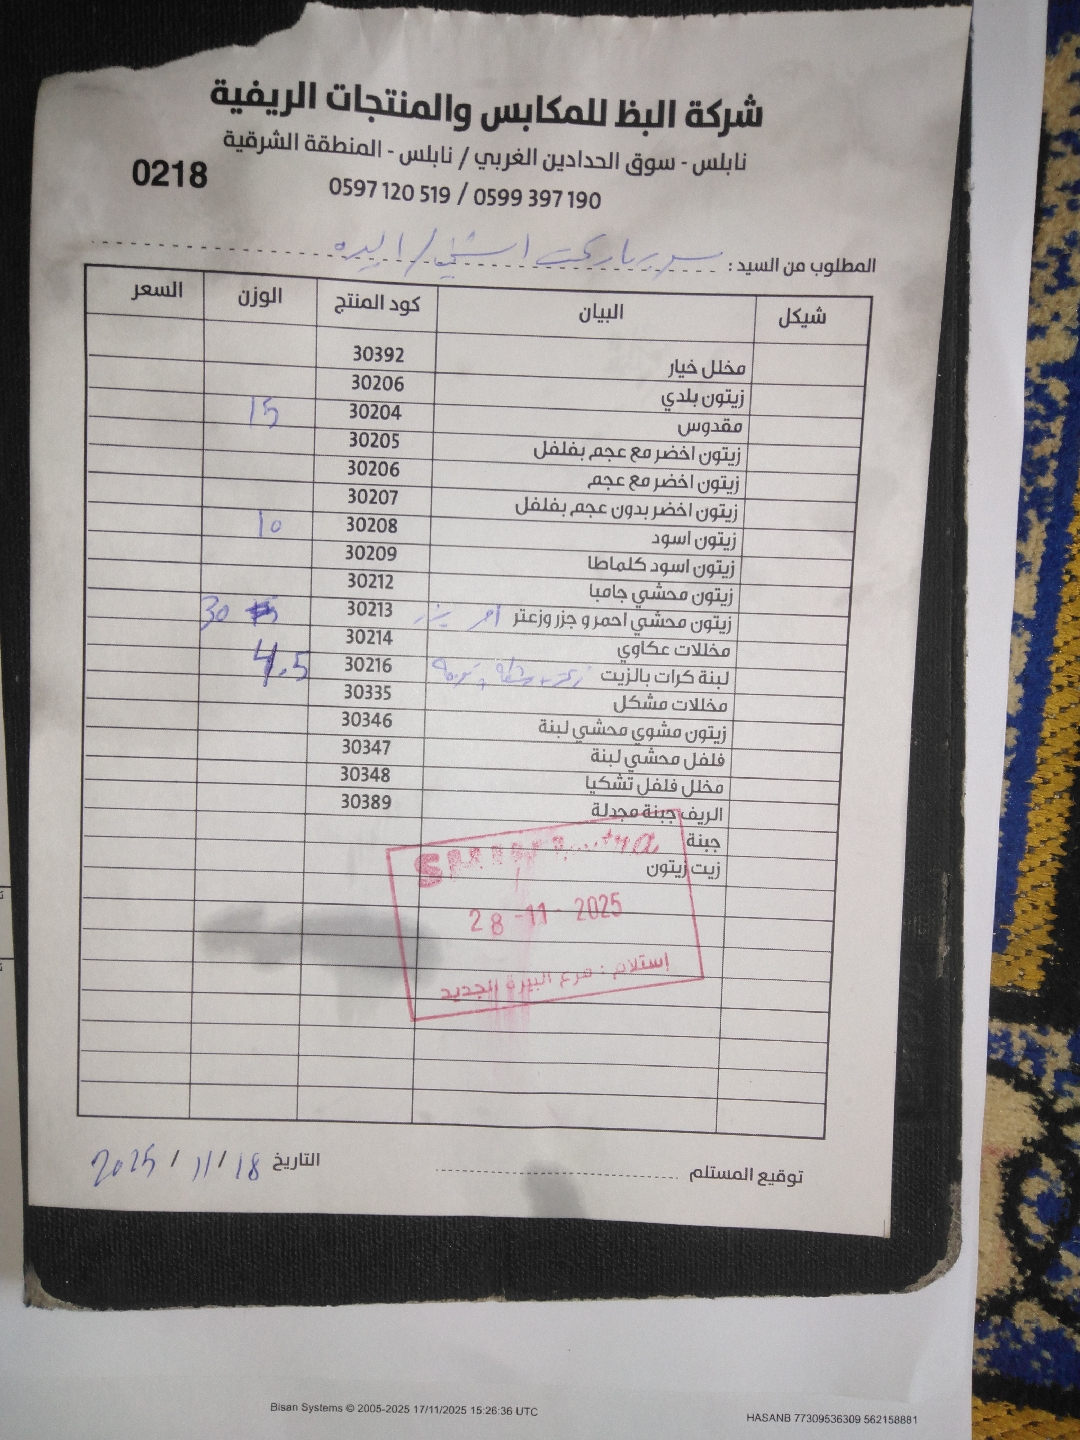 شركة البظ للمكابس والمنتجات الريفية
نابلس - سوق الحدادين الغربي / نابلس - المنطقة الشرقية
0218
0597 120 519 / 0599 397 190
المطلوب من السيد :
شيكل البيان كود المنتج الوزن السعر
مخلل خيار 30392
زيتون بلدي 30206
مقدوس 30204 15
زيتون اخضر مع عجم بفلفل 30205
زيتون اخضر مع عجم 30206
زيتون اخضر بدون عجم بفلفل 30207
زيتون اسود 30208 10
زيتون اسود كلماطا 30209
زيتون محشي جامبا 30212
زيتون محشي احمر و جزر وزعتر 30213 30
مخللات عكاوي 30214
لبنة كرات بالزيت 30216 4.5
مخللات مشكل 30335
زيتون مشوي محشي لبنة 30346
فلفل محشي لبنة 30347
مخلل فلفل تشكيا 30348
الريف جبنة مجدلة 30389
جبنة
زيت زيتون
28 -11- 2025
إستلام : فرع البيرة الجديد
توقيع المستلم
التاريخ 18 / 11 / 2025
Bisan Systems © 2005-2025 17/11/2025 15:26:36 UTC
HASANB 77309536309 562158881